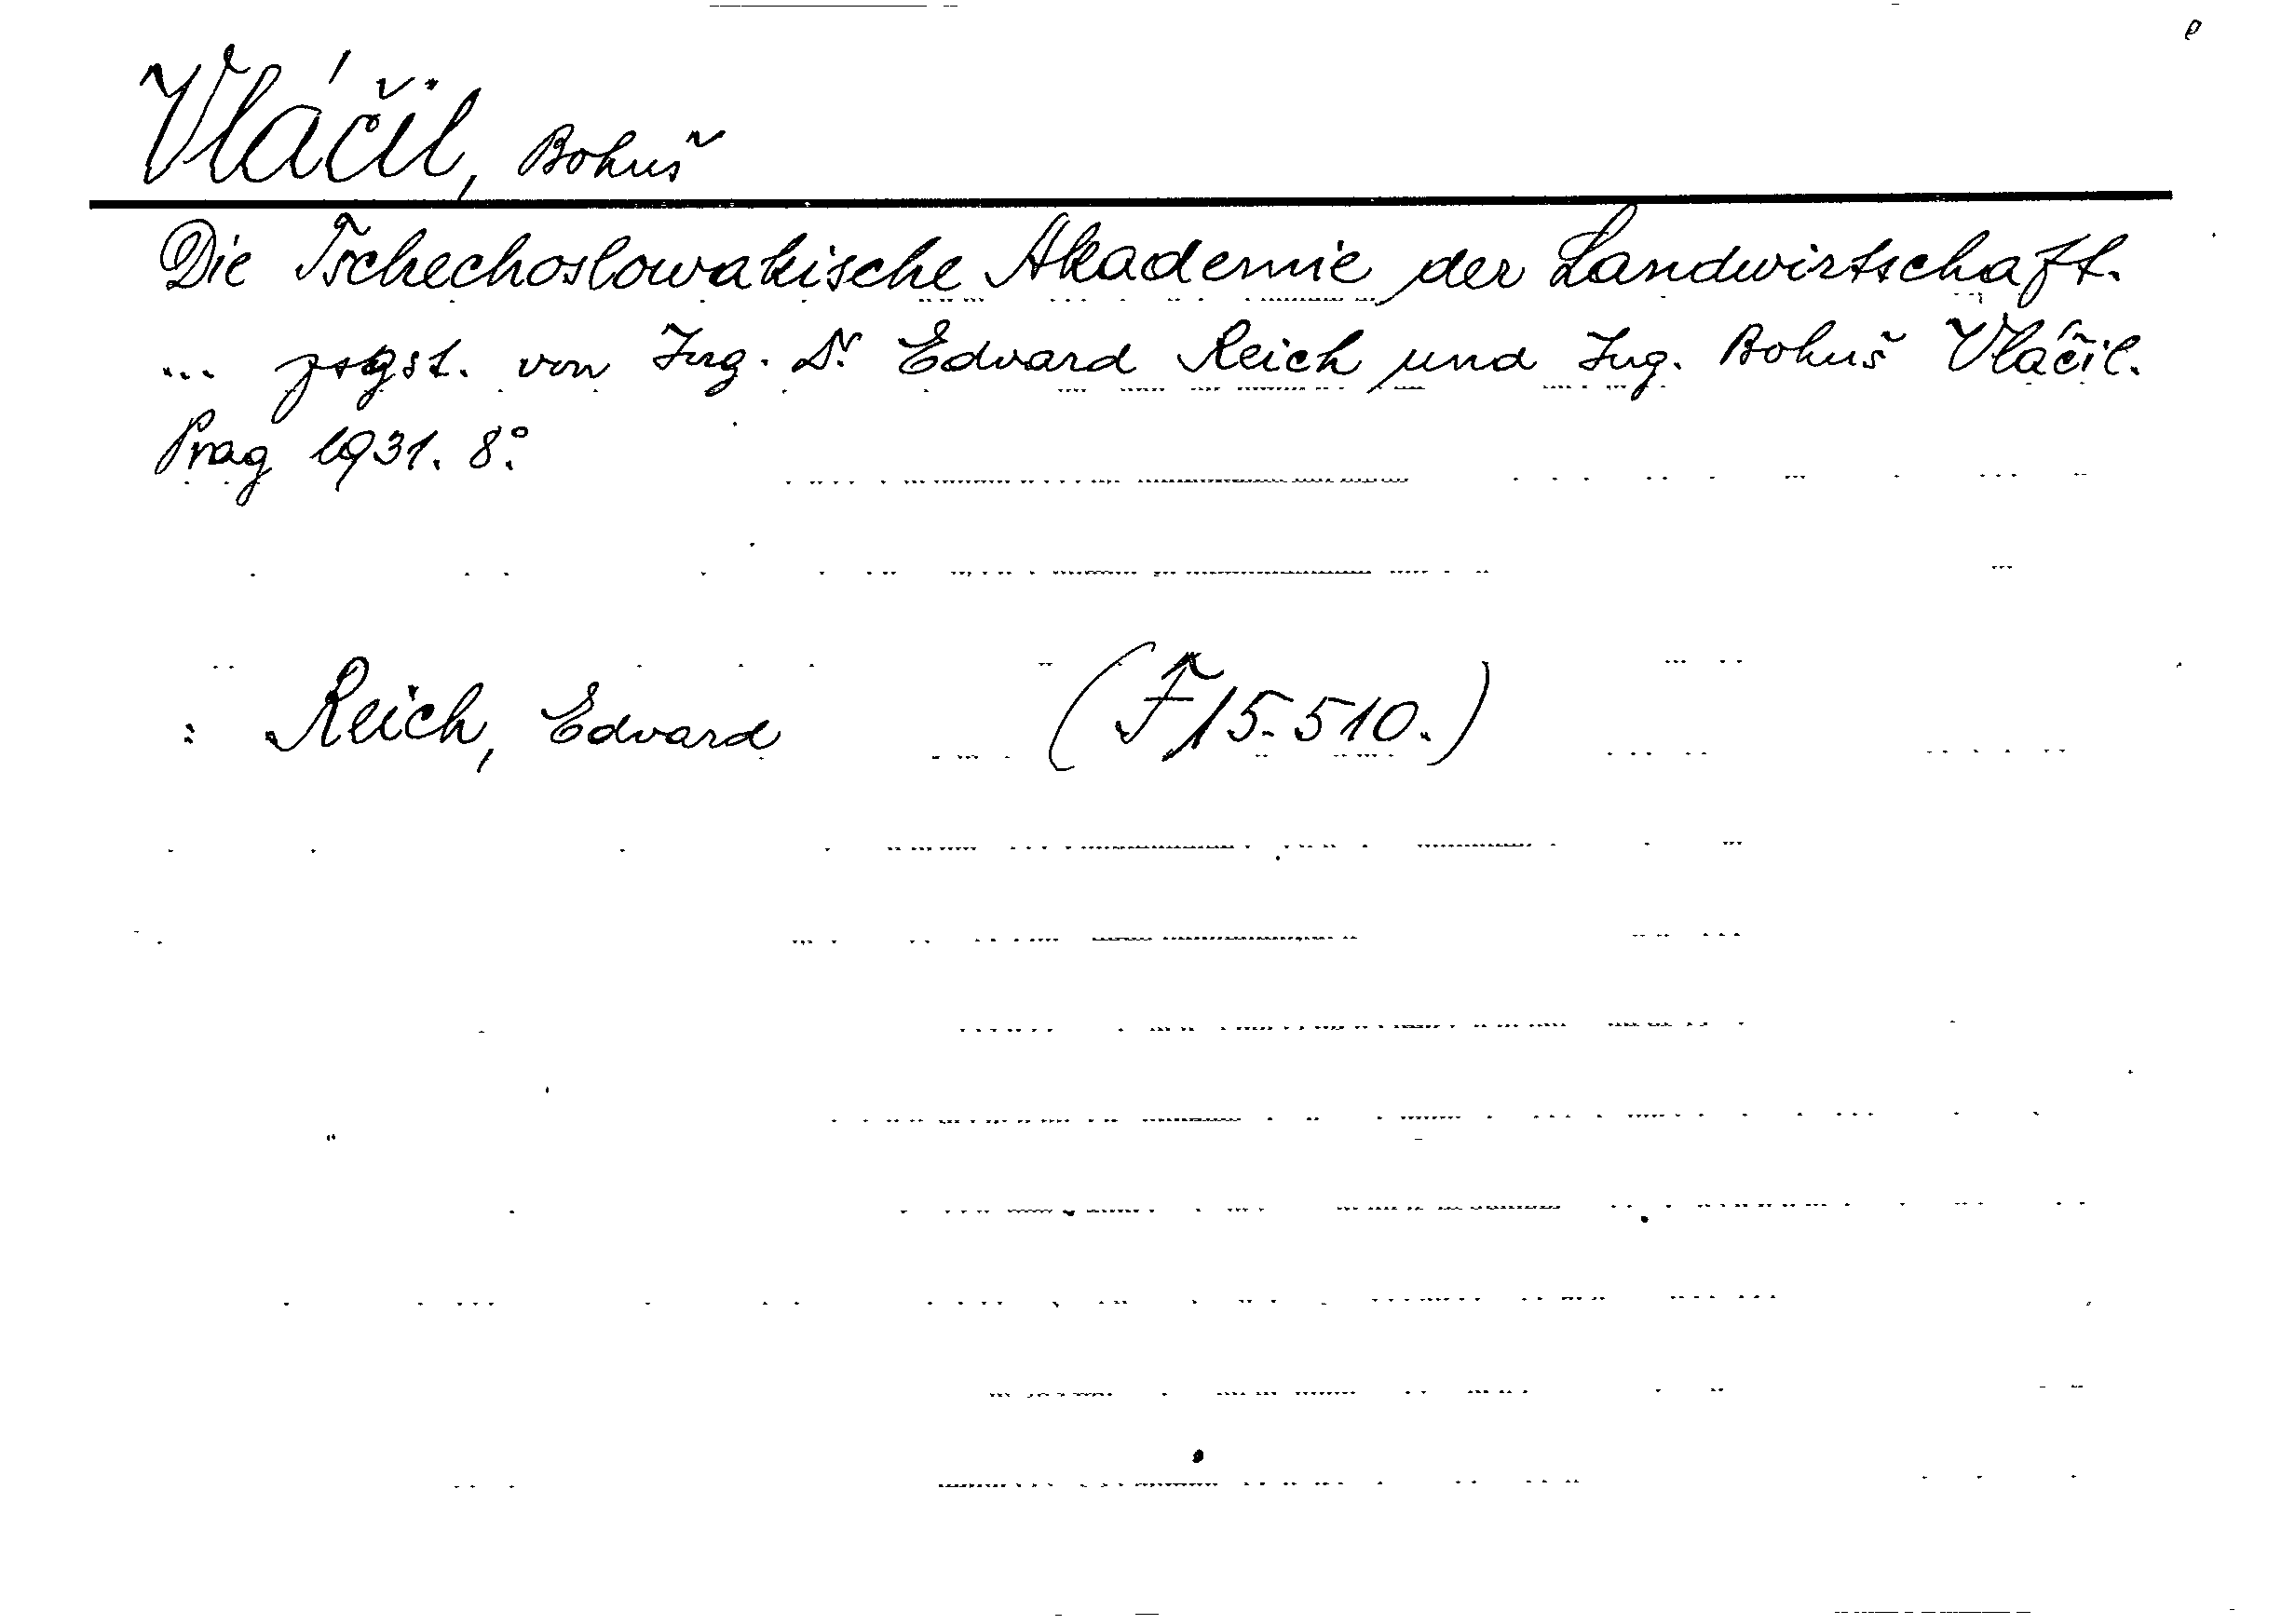 Vláčil, Bohuš
Die Tschechoslowakische Akademie der Landwirtschaft.
... zsgst. von Ing. Dr. Edvard Reich und Ing. Bohuš Vláčil.
Prag 1931. 8°.
: Reich, Edvard (F 15.510.)